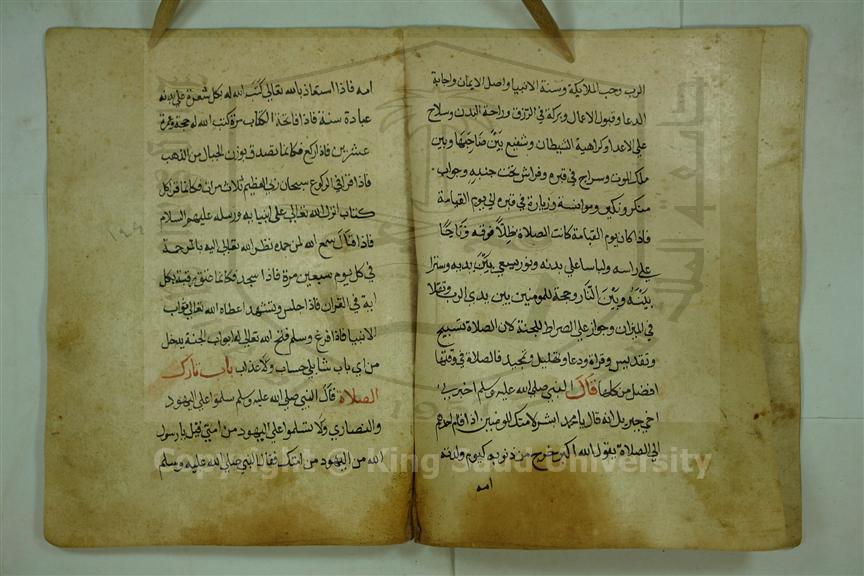 الرب وحب الملايكة وسنة الانبيا واصل الايمان واجابة
الدعا وقبول الاعمال وبركة في الرزق وراحة البدن وسلاح
على الاعدا وكراهية الشيطان وشفيع بين صاحبها وبين
ملك الموت وسراج في قبره وفراش تحت جنبه وجواب
منكر ونكير وموانسة وزيارة في قبره الى يوم القيامة
فاذا كان يوم القيامة كانت الصلاة ظلا فوقه وتاجا
على راسه ولباسا على بدنه ونور يسعى بين يديه وسترا
بينه وبين النار وحجة للمومنين بين يدي الرب وثقلا
في الميزان وجواز على الصراط للجنة لان الصلاة تسبيح
وتقديس وقراة ودعا وتهليل وتمجيد فالصلاة في وقتها
افضل من كلها قال النبي صلى الله عليه وسلم اخبرني
اخي جبريل انه قال يا محمد ابشر لامتك المومنين اذا قام احدهم
الى الصلاة يقول الله اكبر خرج من ذنوبه كيوم ولدته
امه
امه فاذا استعاذ بالله تعالى كتب الله له بكل شعرة على بدنه
عبادة سنة فاذا فاتحة الكتاب مرة كتب الله له حجة وعمرة
عشرين فاذا ركع فكانما تصدق بوزن الجبال من الذهب
فاذا قرا في الركوع سبحان ربي العظيم ثلاث مرات فكانما قرا كل
كتاب انزل الله تعالى على انبيايه ورسله عليهم السلام
فاذا قال سمع الله لمن حمده نظر الله تعالى اليه بالرحمة
في كل يوم سبعين مرة فاذا سجد فكانما عتق رقبة بكل
اية في القران فاذا جلس وتتشهد اعطاه الله تعالى ثواب
الانبيا فاذا افرغ وسلم فتح الله تعالى له ابواب الجنة يدخل
من اي باب شا بلى حساب ولا عذاب باب تارك
الصلاة قال النبي صلى الله عليه وسلم سلموا على اليهود
والنصارى ولا تسلموا على اليهود من امتي فقيل يا رسول
الله من اليهود من امتك فقال النبي صلى الله عليه وسلم
Copyright © King Saud University